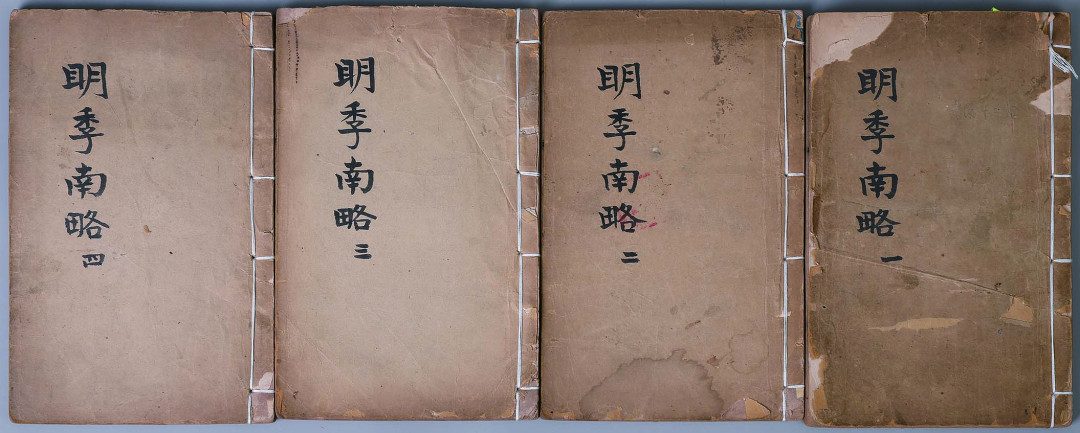 明季南略一
明季南略二
明季南略三
明季南略四